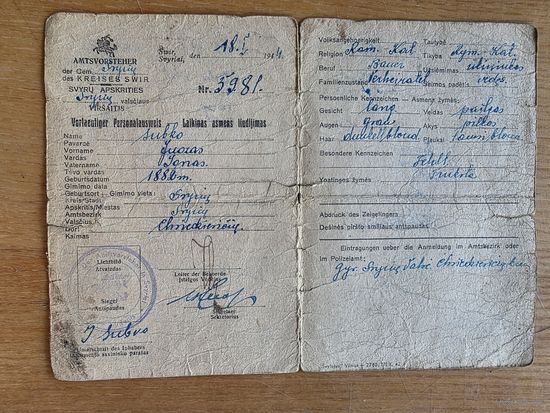 AMTSVORSTEHER
der Gem. Svyrių
DES KREISES SWIR
SVYRŲ APSKRITIES
Svyrių valsčiaus
VIRŠAITIS
Swir, den 18. 194
Svyriai,
Nr. 3981.
Vorlaeufiger Personalausweis — Laikinas asmens liudijimas
Name
Pavardė Subko
Vorname
Vardas Juozas
Vatername
Tėvo vardas Jonas.
Geburtsdatum
Gimimo data 1882 m.
Geburtsort – Gimimo vieta: Svyrių
Kreis/Stadt
Apskritis/Miestas
Amtsbezirk
Valsčius Svyrių
Dorf
Kaimas
Lichtbild
Atvaizdas
Siegel
Antspaudas
Leiter der Behoerde
Įstaigos
Sekretorius
Unterschrift des Inhabers
Dokumento savininko parašas
Volksangehoerigkeit Tautybė
Religion Rom.-Kat. Rym.-Kat.
Beruf Bauer Užsiėmimas
Familienzustand Verheiratet Šeimos padėtis vedęs
Persoenliche Kennzeichen — Asmens žymės:
Gesicht lang Veidas pailgas
Augen grau Akys pilkos
Haar dunkelblond Plaukai
Besondere Kennzeichen
Fehlt
Ypatingos žymės
Abdruck des Zeigefingers
Dešinės piršto smiliaus antspaudas
Eintragungen ueber die Anmeldung im Amtsbezirk oder
im Polizeiamt:
Gyv. Svyrių Valsč.